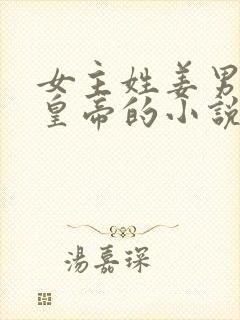 女主姓姜男
皇帝的小說
湯嘉琛